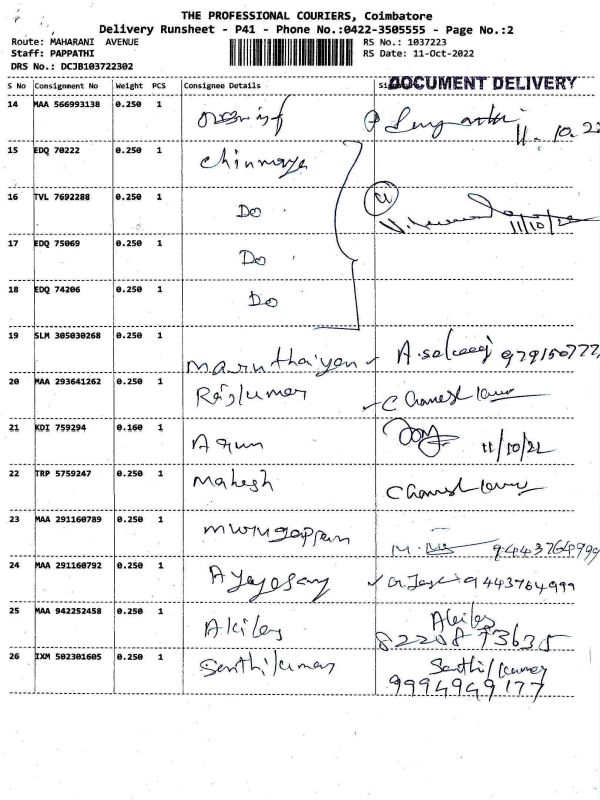 THE PROFESSIONAL COURIERS, Coimbatore
Delivery Runsheet - P41 - Phone No.:0422-3505555 - Page No.:2
Route: MAHARANI AVENUE
RS No.: 1037223
Staff: PAPPATHI
RS Date: 11-Oct-2022
DRS No.: DCJB103722302
DOCUMENT DELIVERY
S No Consignment No Weight PCS Consignee Details
14 MAA 566993138 0.250 1 11.10.22
15 EDQ 70222 0.250 1 Chinmaya
16 TVL 7692288 0.250 1 Do 11/10/22
17 EDQ 75069 0.250 1 Do
18 EDQ 74206 0.250 1 Do
19 SLM 305030268 0.250 1
20 MAA 293641262 0.250 1 Rajkumar
21 KDI 759294 0.160 1 Arjun 11/10/22
22 TRP 5759247 0.250 1 Mahesh
23 MAA 291160789 0.250 1 Murugappan 9443764999
24 MAA 291160792 0.250 1 9443764999
25 MAA 942252458 0.250 1 Akiles Akiles
82208 73635
26 IXM 502301605 0.250 1 Senthilkumar Senthilkumar
9994949177